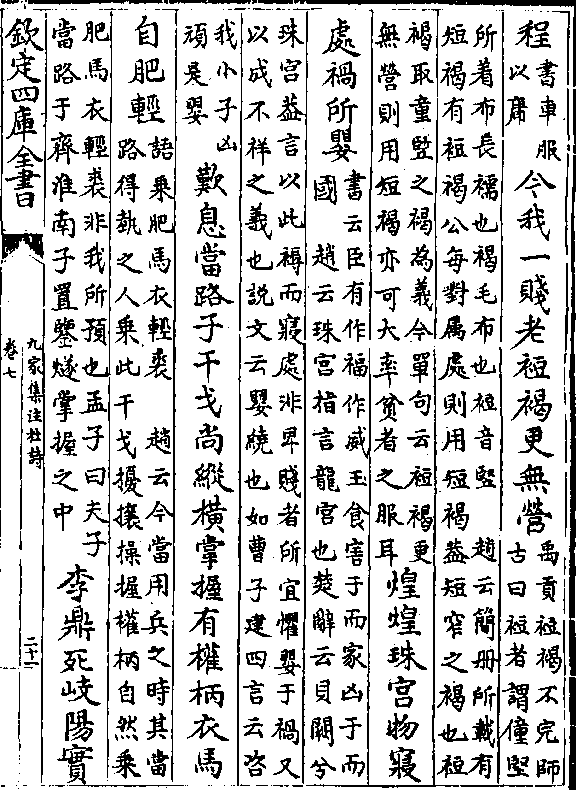 程
書車服
以庸
今我一賤老裋褐更無營
禹貢裋褐不完師
古曰裋者謂僮豎
所着布長襦也褐毛布也裋音豎
趙云簡冊所載有
短褐有裋褐公每對屬處則用短褐葢短窄之褐也裋
褐取童豎之褐為義今單句云裋褐更
無營則用短褐亦可大率貧者之服耳
煌煌珠宮物寢
處禍所嬰
書云臣有作福作威玉食害于而家凶于而
國
趙云珠宮指言龍宮也楚辭云貝闕兮
珠宮葢言以此褥而寢處非卑賤者所宜懼嬰于禍又
以成不祥之義也說文云嬰繞也如曹子建四言云咨
我小子凶
頑是嬰
歎息當路子干戈尚縱橫掌握有權柄衣馬
自肥輕
語乘肥馬衣輕裘
趙云今當用兵之時其當
路得執之人乘此干戈擾攘操握權柄自然乘
肥馬衣輕裘非我所預也孟子曰夫子
當路于齊淮南子置鑒燧掌握之中
李鼎死岐陽實
欽定四庫全書
九家集注杜詩
卷七
二十一